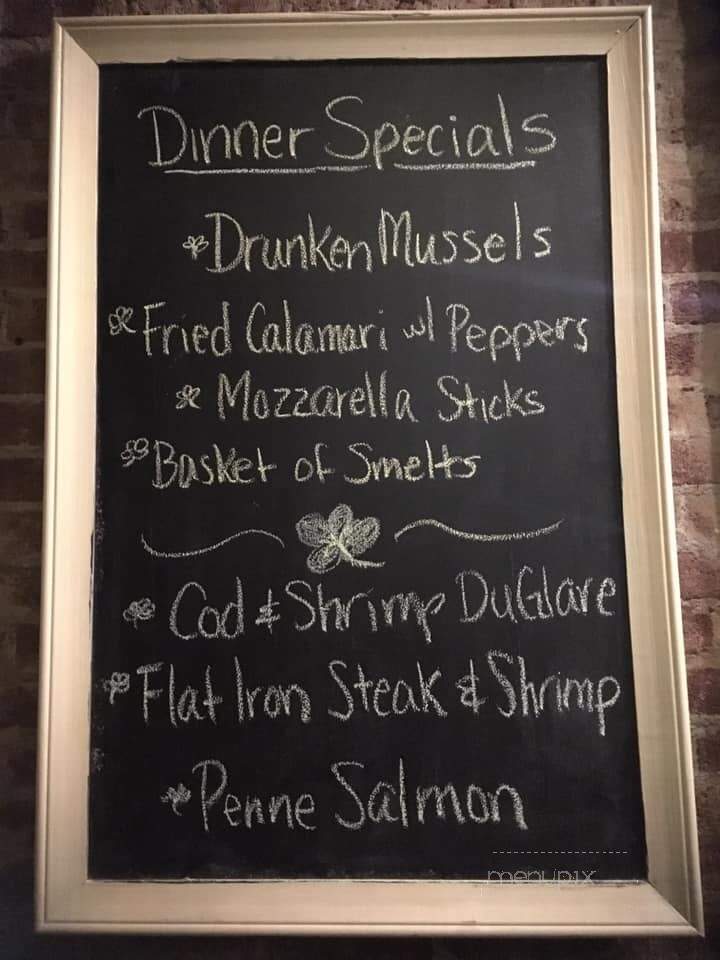 Dinner Specials
Drunken Mussels
Fried Calamari w/ Peppers
Mozzarella Sticks
Basket of Smelts
Cod & Shrimp DuGlare
Flat Iron Steak & Shrimp
Penne Salmon
menupix